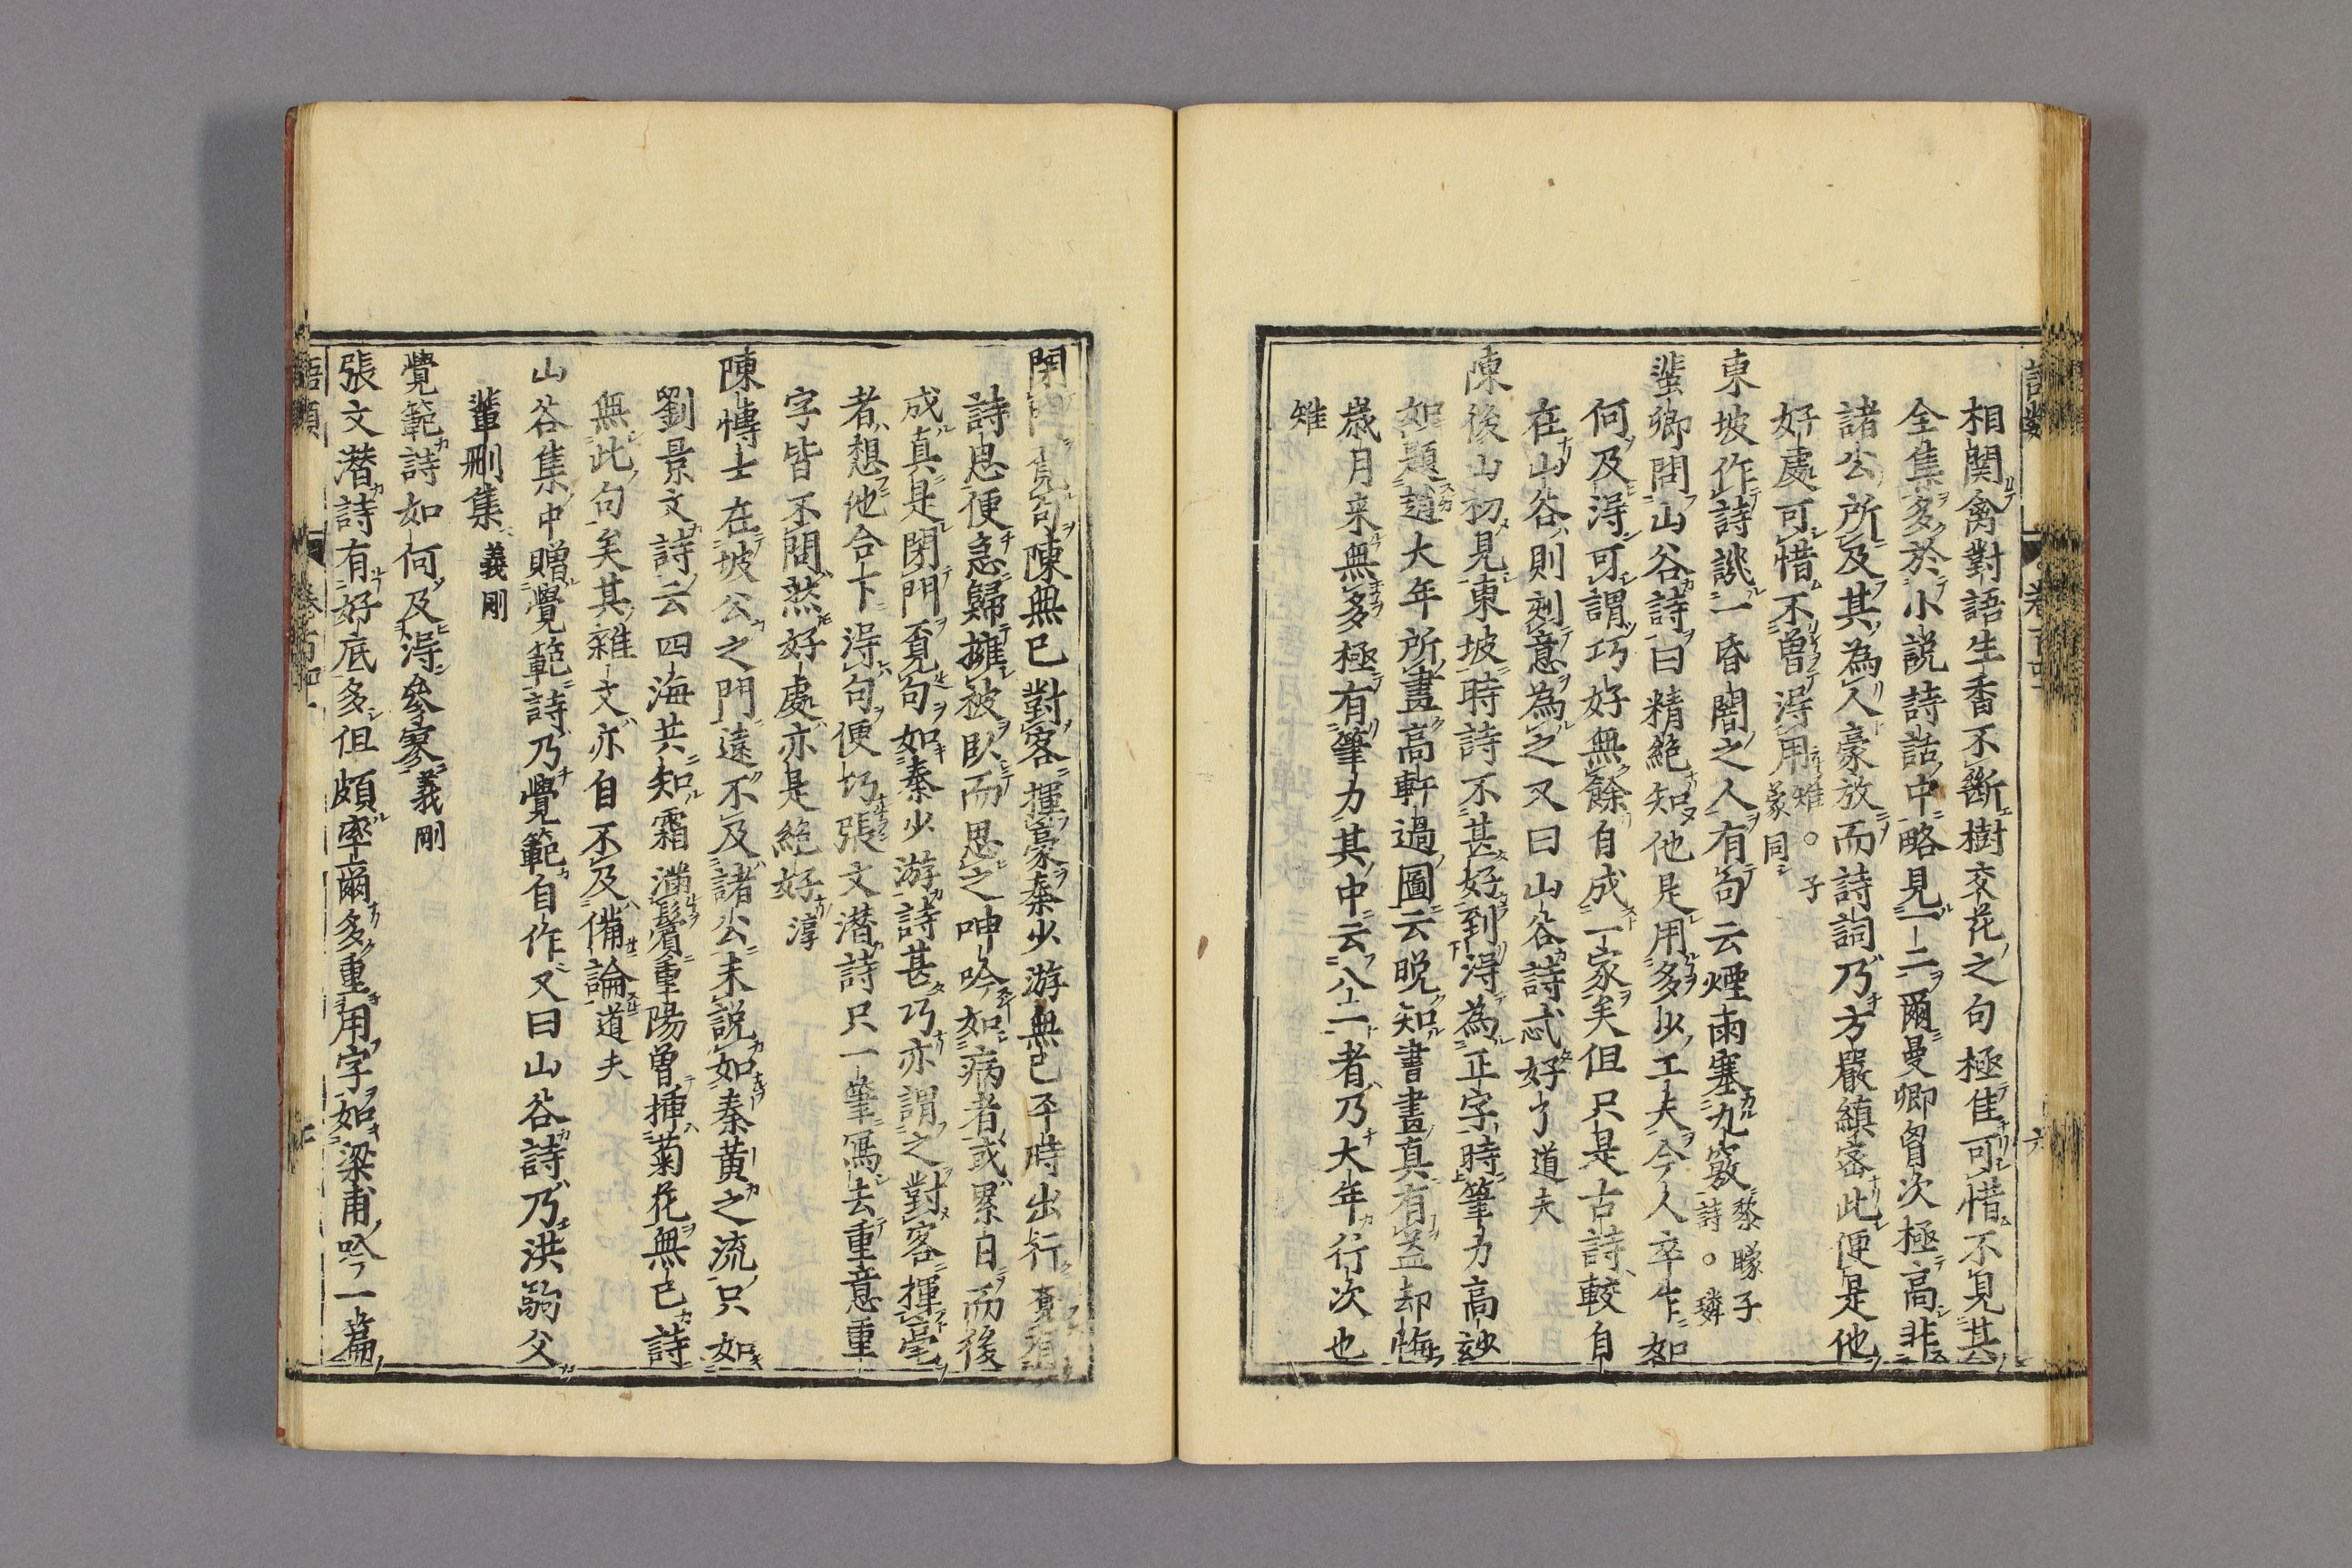 相関禽對語生香不斷樹交花之句極佳可惜不見其
全集多於小説詩話中略見一二爾曼卿胷次極高非
諸公所及其為人豪放而詩詞乃方嚴縝密此便是他
好處可惜不曽得用雉○子蒙同
東坡作詩譏一昏闇之人有句云煙雨塞九竅黎矇子詩○璘
蜚卿問山谷詩曰精絶知他是用多少工夫今人卒乍如
何及得可謂巧好無餘自成一家矣但只是古詩較自
在山谷則刻意為之又曰山谷詩忒好了道夫
陳後山初見東坡時詩不甚好到得為正字時筆力高妙
如題趙大年所畫高軒過圖云晩知書畫真有益却悔
歳月来無多極有筆力其中云八二者乃大年行次也
雉
閉門覓句陳無已對客揮毫秦少游無已平時出行覺有
詩思便急歸擁被臥而思之呻吟如病者或累日而後
成真是閉門覓句如秦少游詩甚巧亦謂之對客揮毫
者想他合下得句便巧張文潜詩只一筆寫去重意重
字皆不問然好處亦是絶好淳
陳博士在坡公之門遠不及諸公未説如秦黄之流只如
劉景文詩云四海共知霜滿鬢重陽曽挿菊花無已詩
無此句矣其雜文亦自不及備論道夫
山谷集中贈覺範詩乃覺範自作又曰山谷詩乃洪駒父
輩刪集義剛
覺範詩如何及得參寥義剛
張文潜詩有好底多但頗率爾多重用字如梁甫吟一篇